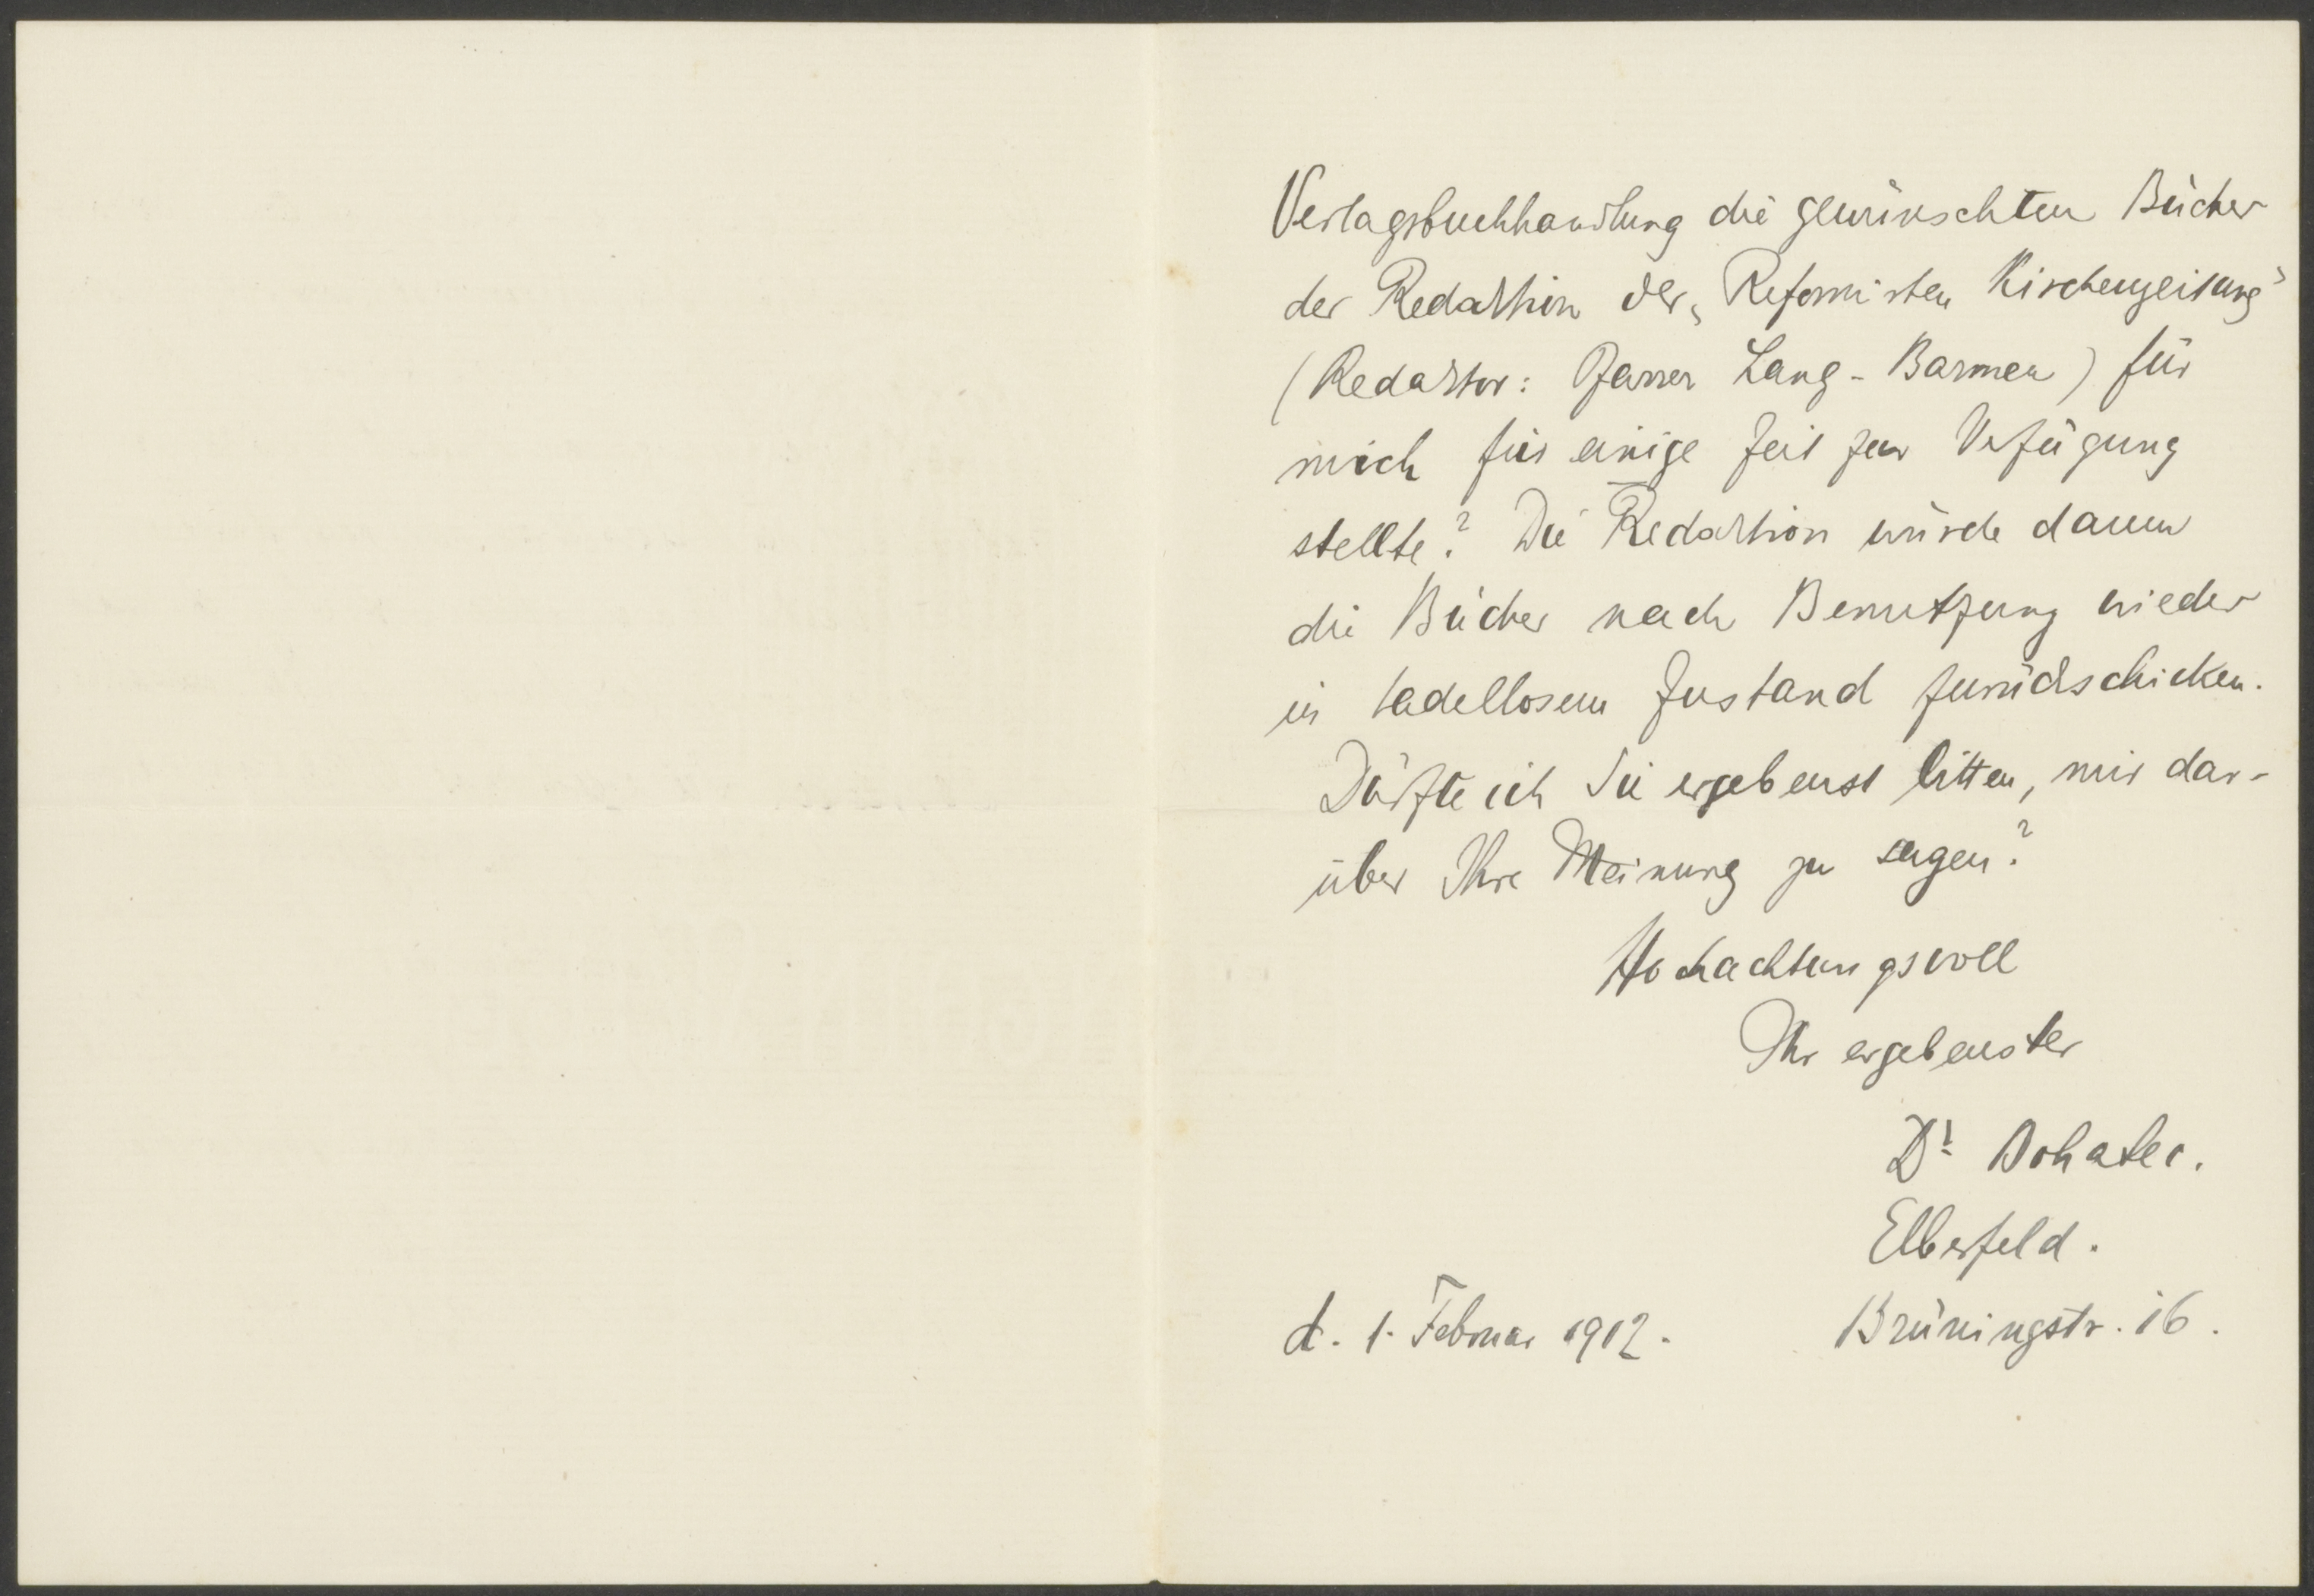 Verlagsbuchhandlung die gewünschten Bücher
der Redaktion der „Reformirten Kirchenzeitung"
(Redaktor: Pfarrer Lang - Barmen) für
mich für einige Zeit zur Verfügung
stellte? Die Redaktion würde dann
die Bücher nach Benutzung wieder
in tadellosem Zustand zurückschicken.
Dürfte ich Sie ergebenst bitten, mir dar-
über Ihre Meinung zu sagen?
Hochachtungsvoll
Ihr ergebenster
Dr Bohatec.
Elberfeld.
d. 1. Februar 1912. Brüningstr. 16.